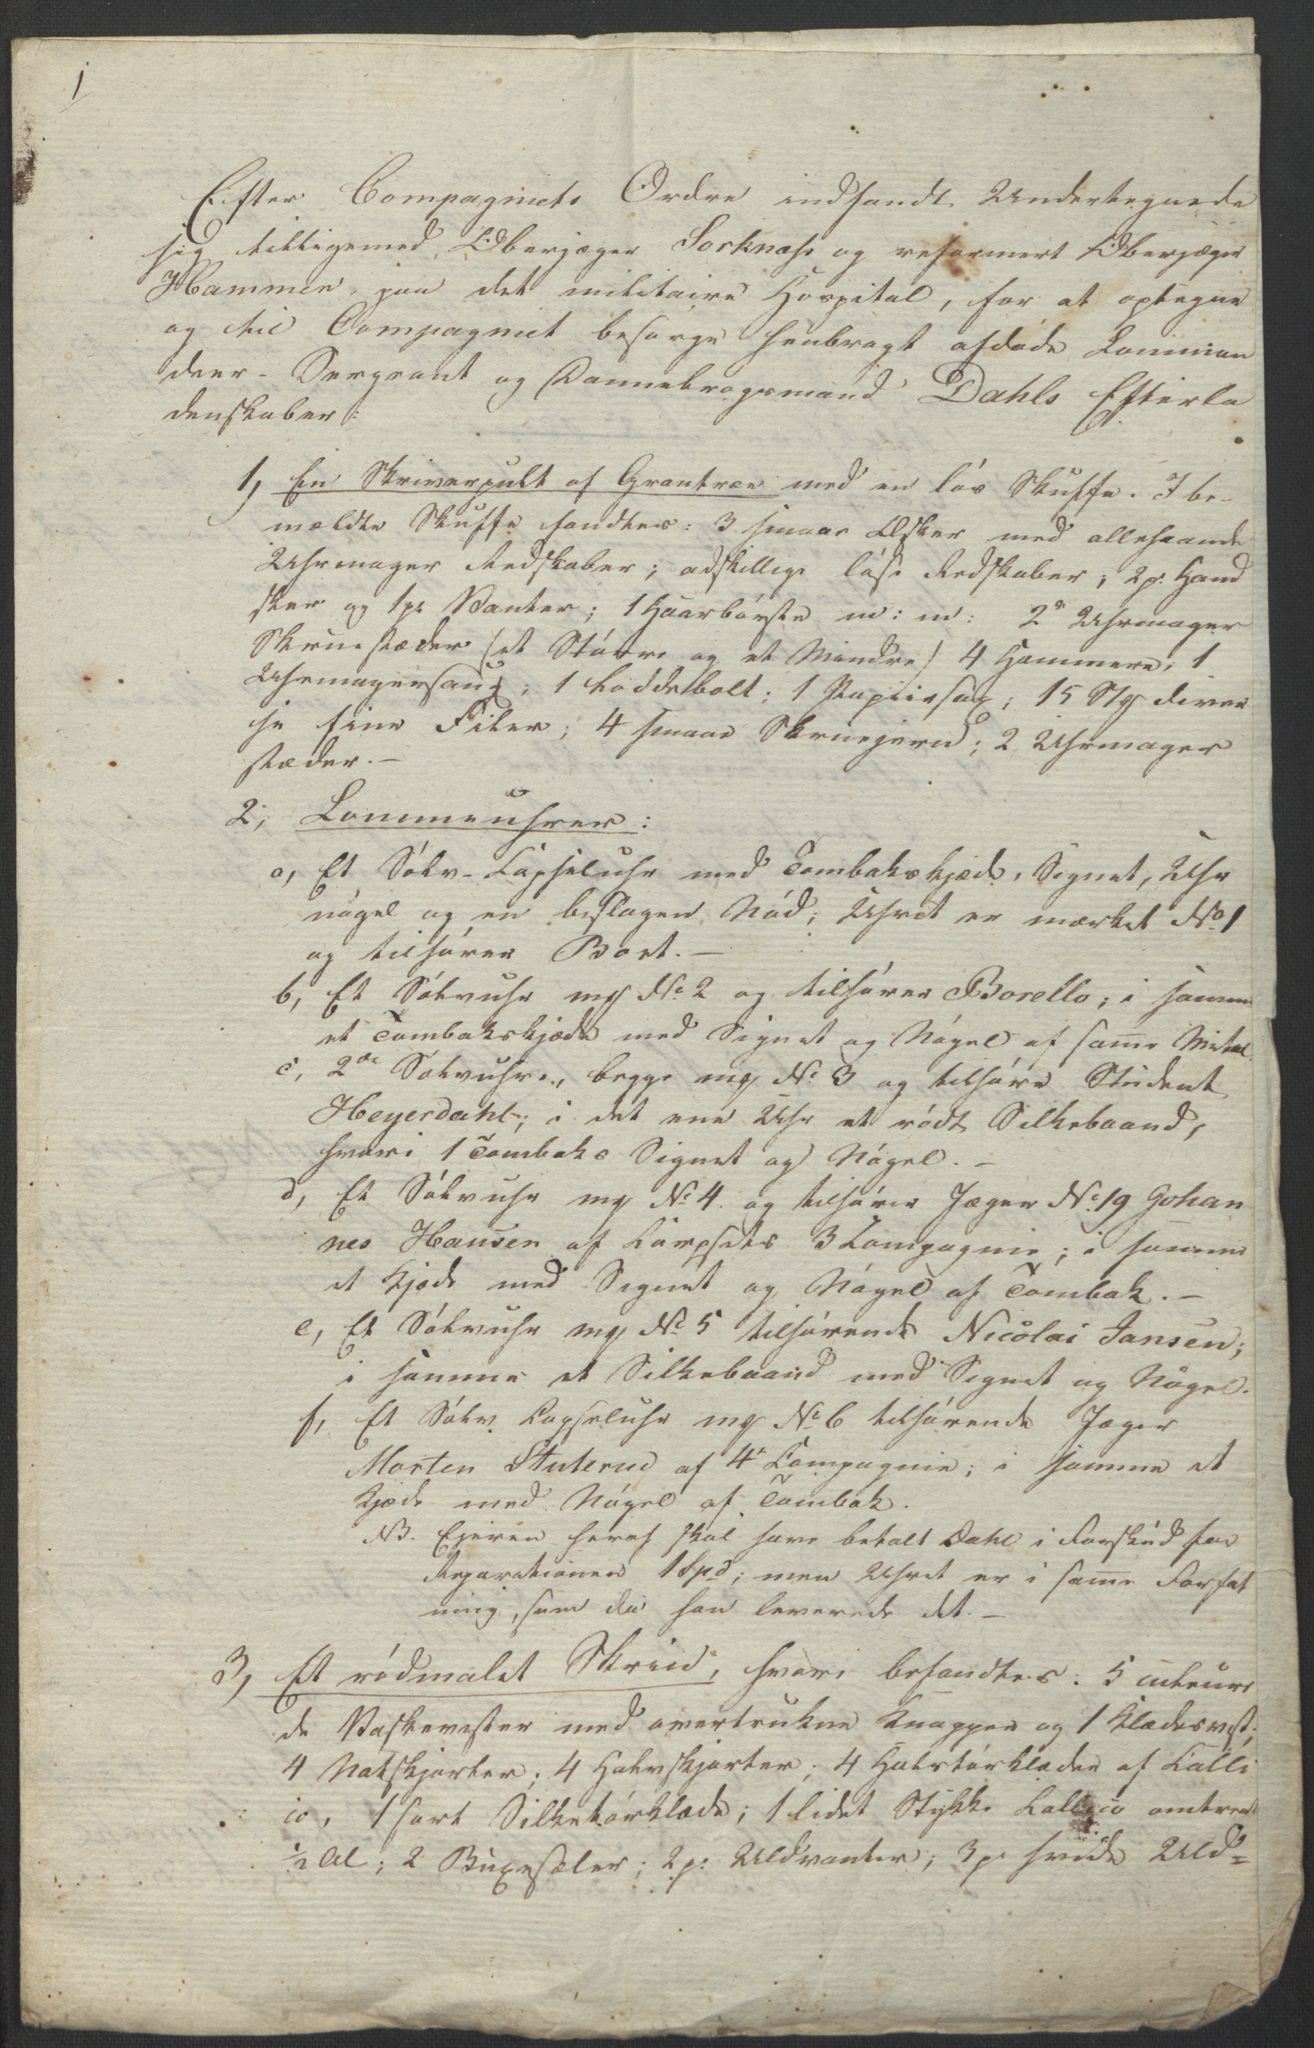 1
Efter Compagniets Ordre indfandt Undertegnede
sig tilligemed Oberjæger Sorknæs og reformert Oberjæger
Hammer, paa det militaire Hospital, for at optegne
og til Compagniet besørge henbragt afdøde Comman
deer-Sergeant og Dannebrogsmand Dahls Efterla
denskaber:
1, En Skriverpult af Grantræe med en løs Skuffe. I be-
mældte Skuffe fandtes: 3 smaae Æsker med allehaande
Uhrmager Redskaber; adskillige løse Redskaber; 2 p: Hand
sker og 1 p: Vanter; 1 Haarbørste m: m: 2de Uhrmager
Skruestæder (et Større og et Mindre) 4 Hammere; 1
Uhrmagersaug; 1 Loddebolt; 1 Papiirsax; 15 Stk diver
se fine Filer; 4 smaae Skruejern; 2 Uhrmager
stæder. —
2, Lommeuhrer:
a, Et Sølv-Capseluhr med Tombakskjæde, Signet, Uhr
nøgel og en beslagen Nød; Uhret er mærket No 1
og tilhører Boet. —
b, Et Sølvuhr mk No 2 og tilhører Borello; i samme
et Tombakskjæde med Signet og Nøgel af same Metal.
c, 2de Sølvuhre, begge mk No 3 og tilhøre Student
Heyerdahl; i det ene Uhr et rødt Silkebaand,
hvori 1 Tombaks Signet og Nøgel. —
d, Et Sølvuhr mk No 4 og tilhører Jæger No 19 Johan
nes Hansen af Corpsets 3 Compagnie; i samme
et Kjæde med Signet og Nøgel af Tombak. —
e, Et Sølvuhr mk No 5 tilhørende Nicolai Jansen;
i samme et Silkebaand med Signet og Nøgel.
f, Et Sølv Capseluhr mk No 6 tilhørende Jæger
Morten Stuterud af 4de Compagnie; i samme et
Kjæde med Nøgel af Tombak.
NB. Ejeren heraf skal have betalt Dahl i Forskud for
Reparationen 1 Spd; men Uhret er i same Forfat
ning, som da han leverede det. —
3, Et rødmalet Skrin, hvori befandtes: 5 couleure
de Vaskevester med overtrukne Knapper og 1 Klædesvest;
4 Natskjorter; 4 Halvskjorter; 4 Halstørklæder af Calli
co, 1 sort Silketørklæde; 1 lidet Stykke Callico omtrent
1/2 Al; 2 Buxeseler; 2 p: Uldvanter; 3 p: hvide Uld=